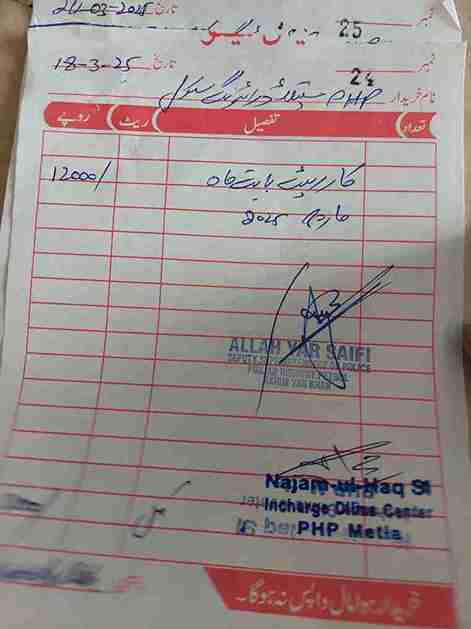 24-03-2025 تاریخ 25 نمبر
18-3-25 تاریخ 24 نمبر
نام خریدار PHP ڈرائیونگ سکول
تعداد تفصیل ریٹ روپے
کار رینٹ بابت ماہ 12000/
مارچ 2025
ALLAH YAR SAIFI
DEPUTY SUPERINTENDENT OF POLICE
PUNJAB HIGHWAY PATROL
RAHIM YAR KHAN
Najam-ul-Haq SI
Incharge Center
PHP Metla
خریدا ہوا مال واپس نہ ہوگا۔